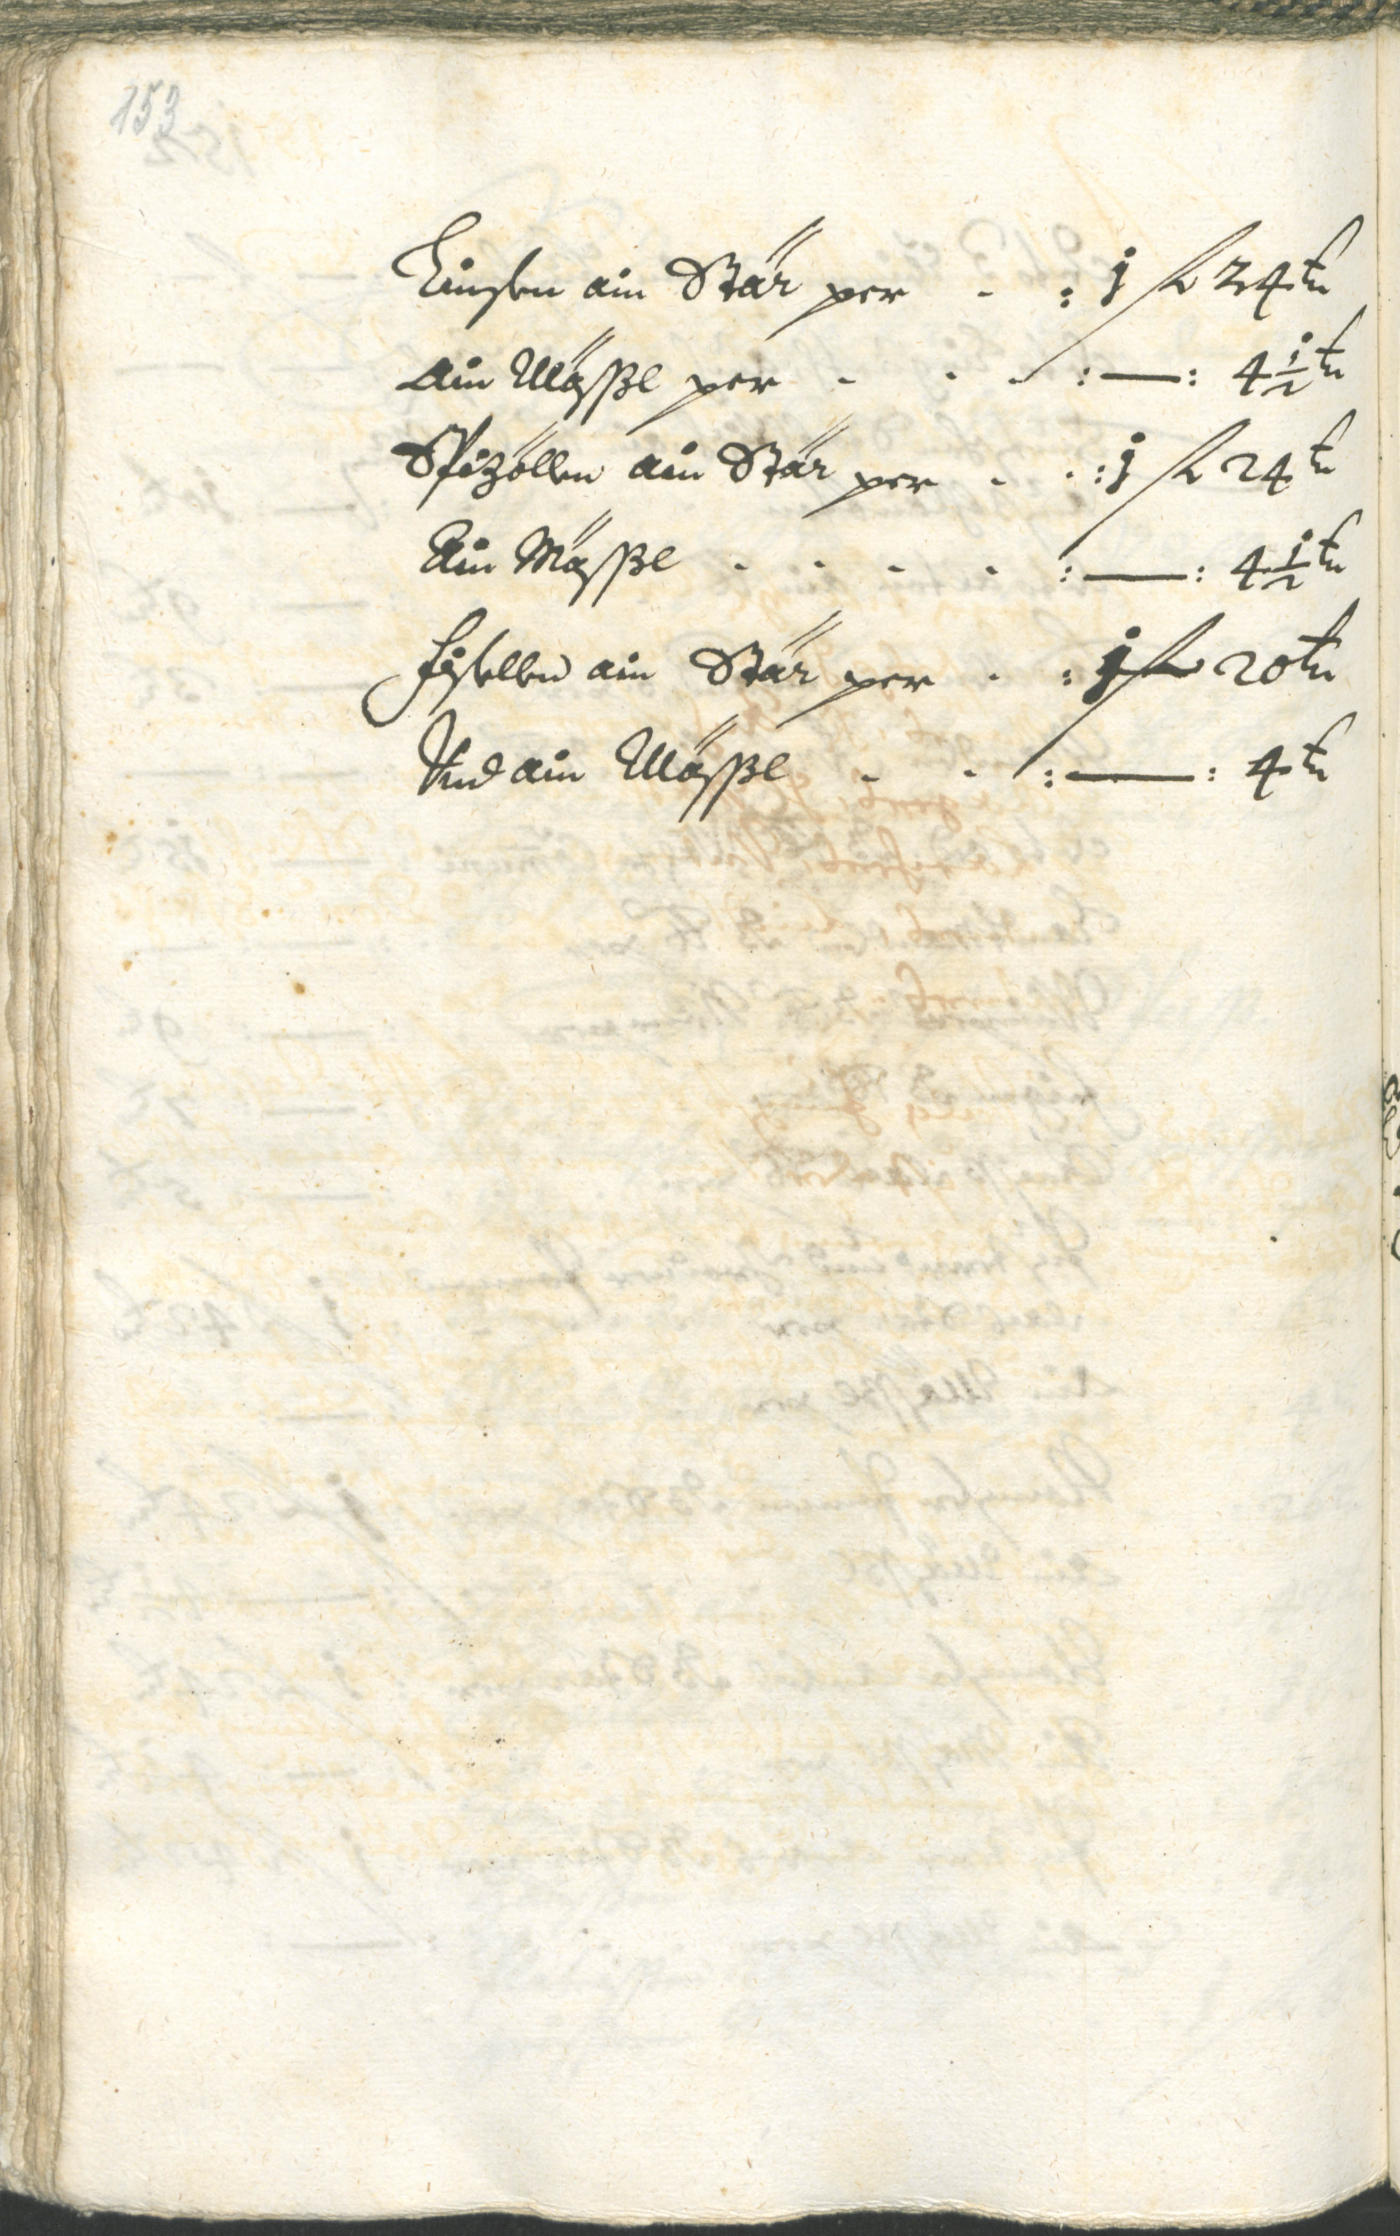 153
Linsen ain Stär per - : j fl 24 kr
ain Mässl per - - - : — : 4 1/2 kr
Spizöllen ain Stär per - - : j fl 24 kr
Ain Mässl - - - - : — : 4 1/2 kr
Fisellen ain Stär per - : j fl 20 kr
Und ain Mässl - - : — : 4 kr